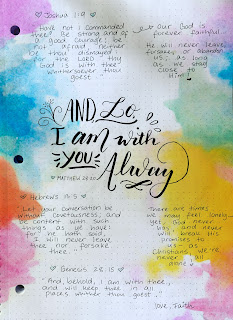 Joshua 1:9
"Have not I commanded
thee? Be strong and of
a good courage; be
not afraid, neither
be thou dismayed:
for the LORD thy
God is with thee
whithersoever thou
goest."
Our God is
forever faithful.
He will never leave,
forsake, or abandon
us, as long
as we stay
close to
Him!
AND, Lo
I am with
YOU Alway
MATTHEW 28:20
Hebrews 13:5
"Let your conversation be
without covetousness; and
be content with such
things as ye have:
for he hath said,
I will never leave
thee, nor forsake
thee."
There are times
we may feel lonely...
yet, God never
has and never
will break His
promises to
us- as
Christians, we're
never all
alone!
Genesis 28:15
"And, behold, I am with thee,
and will keep thee in all
places whither thou goest..."
Love, Faith